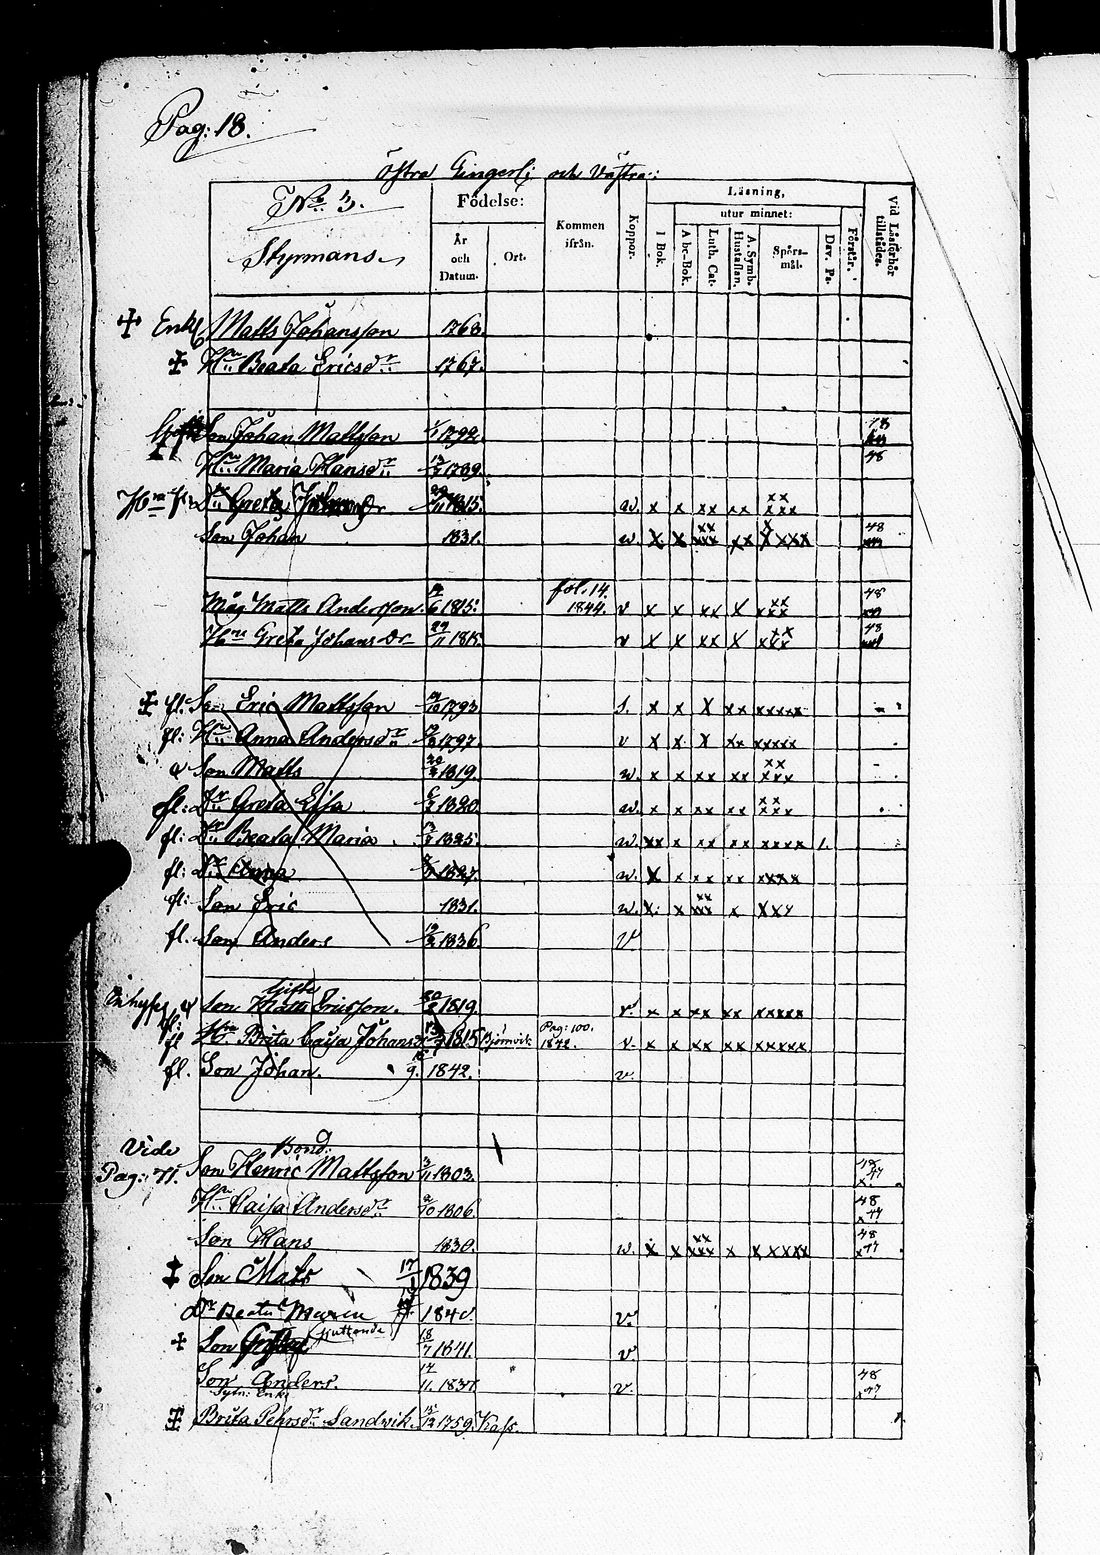 Pag: 18.
Östra Gingerli och Västra:
No 3.
Styrmans
Födelse:
År och Datum.
Ort.
Kommen ifrån.
Koppor.
Läsning,
I Bok.
utur minnet:
A bc-Bok.
Luth. Cat.
A. Symb. Hustaflan.
Spörsmål.
Dav. Ps.
Förstår.
Vid Läsförhör tillstädes.
Enkl Matts Johansson 1768.
Hru Beata Ericsdr 1767.
Son Johan Mattsson 1792. 48
Hru Maria Hansdr 1789. 48
Dr Greta 1815. w. x x xx xx xx xxx
Son Johan 1831. w. x x xx xxx xx x xxx 48
Måg Matts Andersson 6 1815. fol. 14. 1844. v x x xx x xx xxx 48
Hru Greta Johans Dr 29/11 1815. v x x xx x xx xxx 48
fl: Son Eric Mattsson 1793. s. x x x xx xxxxx
fl: Hru Anna Andersdr 1797. v x x x xx xxxxx
Son Matts 20/2 1819. w. x x xx xx xx xxx
fl: Dr Greta Lisa 1820. w. x x xx xx xx xxx
fl: Dr Beata Maria 1825. w. xx x xx xx xxxxx 1.
fl: Dr Anna 1827. w. x x xx xx xxxx
fl: Son Eric 1831. w. x. x xx xxx x xxx
fl. Son Anders 13/2 1836. v
Gifte
Inhyses Son Matts Ericsson. 20/2 1819. v. x x xx xx xxxxx
fl Hru Brita Caisa Johansdr 1815 Björnvik Pag: 100. 1842. v. x x xx xx xxxxx
fl. Son Johan. 9. 1842. v.
Vide Pag: 71.
Bond:
Son Henric Mattsson 3/11 1803. 47
Hru Caisa Andersdr 1806. 48 x 47
Son Hans 1830. w. x x xx xxx x xxxxx 48 x 47
Son Mats 17/1 1839
Dr Beata Maria 1840. v.
Son 18/7 1841. v.
Son Anders. 14/11. 1837. v. 48 x 47
Sytn: Enk:
Brita Pehrsdr Sandvik. 12/12 1759. Kafs.